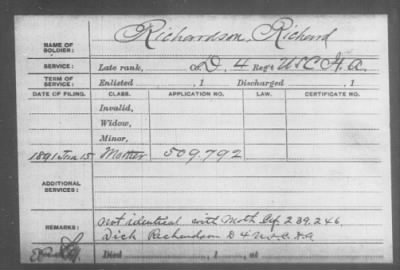 NAME OF SOLDIER: Richardson, Richard
SERVICE: Late rank, Co. D, 4 Reg't U S C H. A.
TERM OF SERVICE: Enlisted , 1 Discharged , 1
DATE OF FILING. CLASS. APPLICATION NO. LAW. CERTIFICATE NO.
Invalid,
Widow,
Minor,
1891 Jun 15 Mother 509.792
ADDITIONAL SERVICES:
REMARKS: Not identical with Moth 239.246
Dick Richardson D 4 U.S.C.H.A
Died , 1 , at